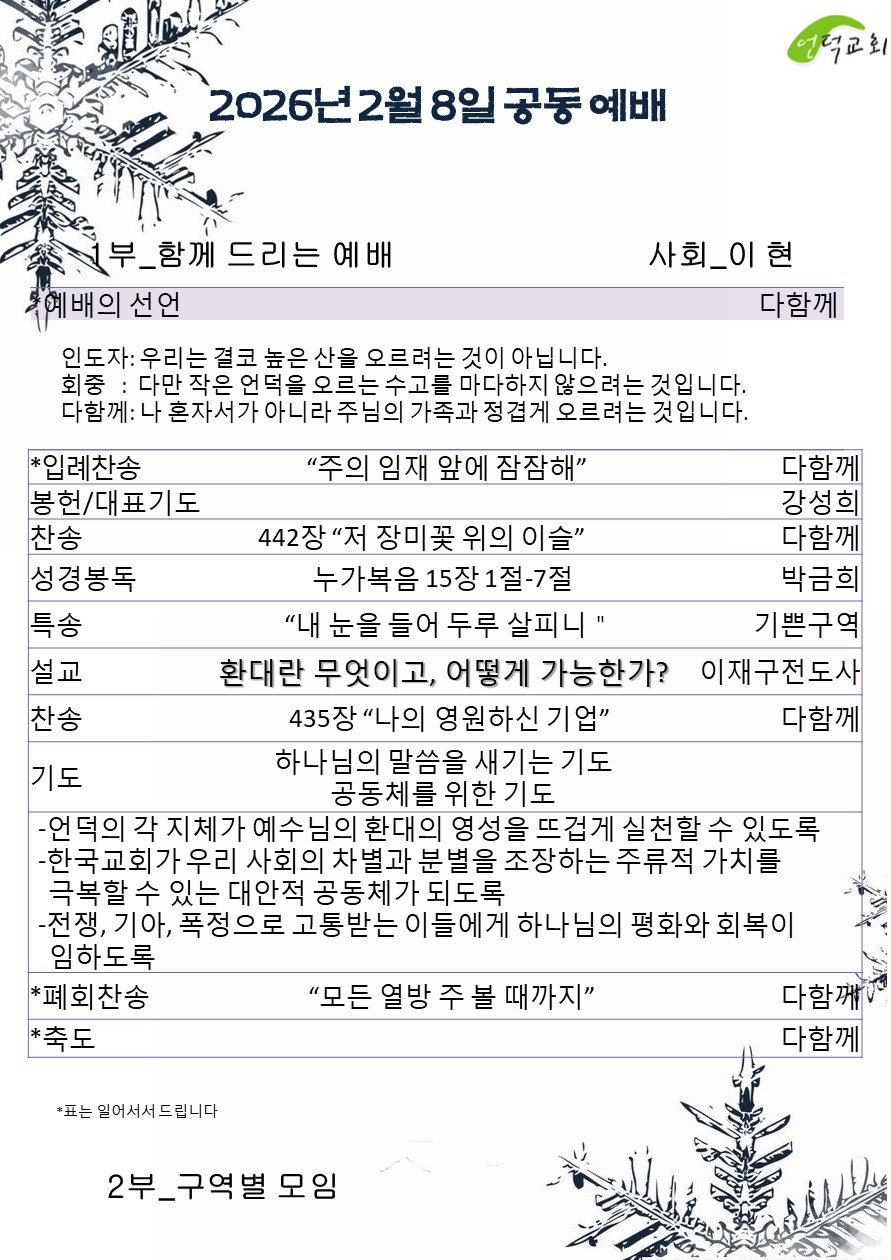 언덕교회
2026년 2월 8일 공동 예배
1부_함께 드리는 예배 사회_이 현
*예배의 선언 다함께
인도자: 우리는 결코 높은 산을 오르려는 것이 아닙니다.
회중 : 다만 작은 언덕을 오르는 수고를 마다하지 않으려는 것입니다.
다함께: 나 혼자서가 아니라 주님의 가족과 정겹게 오르려는 것입니다.
*입례찬송 “주의 임재 앞에 잠잠해” 다함께
봉헌/대표기도 강성희
찬송 442장 “저 장미꽃 위의 이슬” 다함께
성경봉독 누가복음 15장 1절-7절 박금희
특송 “내 눈을 들어 두루 살피니 " 기쁜구역
설교 환대란 무엇이고, 어떻게 가능한가? 이재구전도사
찬송 435장 “나의 영원하신 기업” 다함께
기도 하나님의 말씀을 새기는 기도
공동체를 위한 기도
-언덕의 각 지체가 예수님의 환대의 영성을 뜨겁게 실천할 수 있도록
-한국교회가 우리 사회의 차별과 분별을 조장하는 주류적 가치를
극복할 수 있는 대안적 공동체가 되도록
-전쟁, 기아, 폭정으로 고통받는 이들에게 하나님의 평화와 회복이
임하도록
*폐회찬송 “모든 열방 주 볼 때까지” 다함께
*축도 다함께
*표는 일어서서 드립니다
2부_구역별 모임